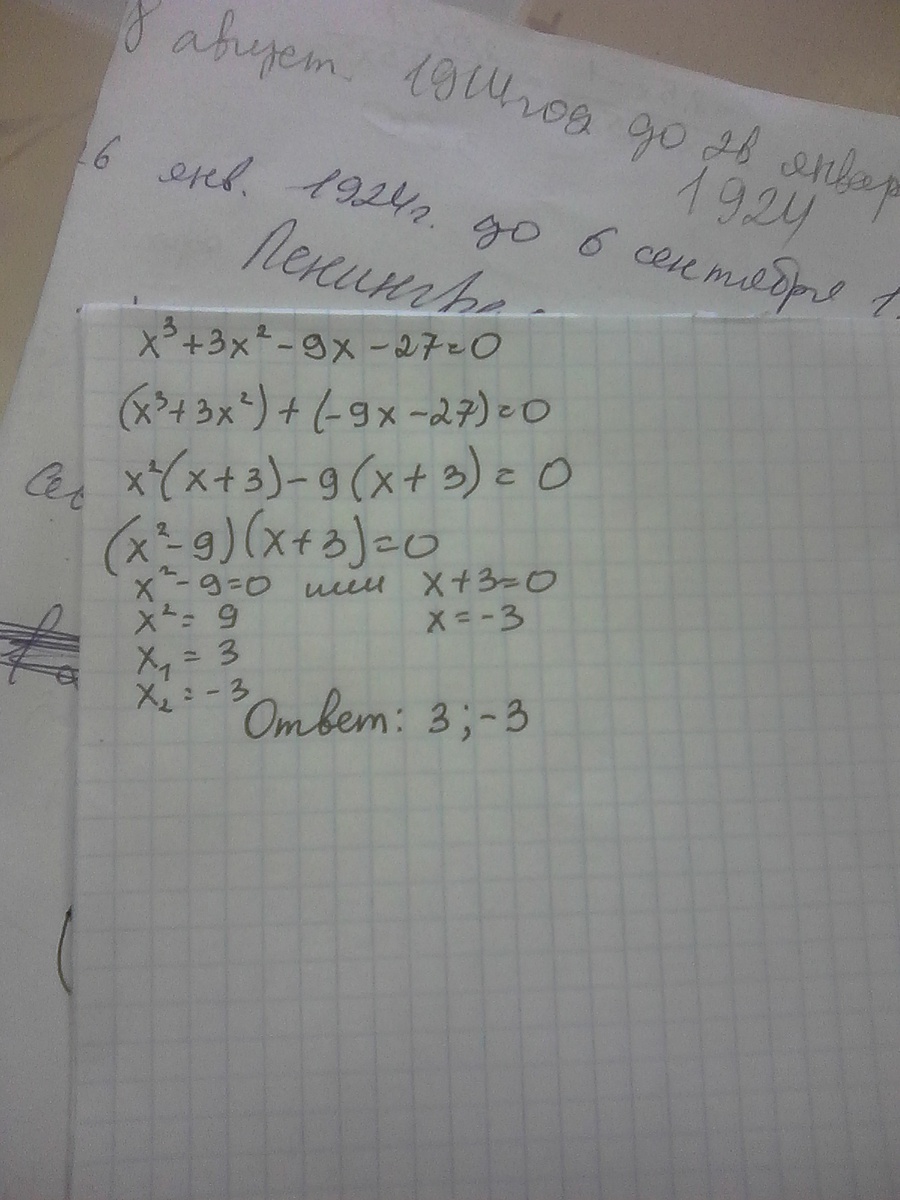 8 август. 1914год до 26 январ
1924
26 янв. 1924г. до 6 сентября 1
Ленингра
x³+3x²-9x-27=0
(x³+3x²)+(-9x-27)=0
x²(x+3)-9(x+3)=0
(x²-9)(x+3)=0
x²-9=0 или x+3=0
x²=9 x=-3
x₁=3
x₂=-3
Ответ: 3;-3